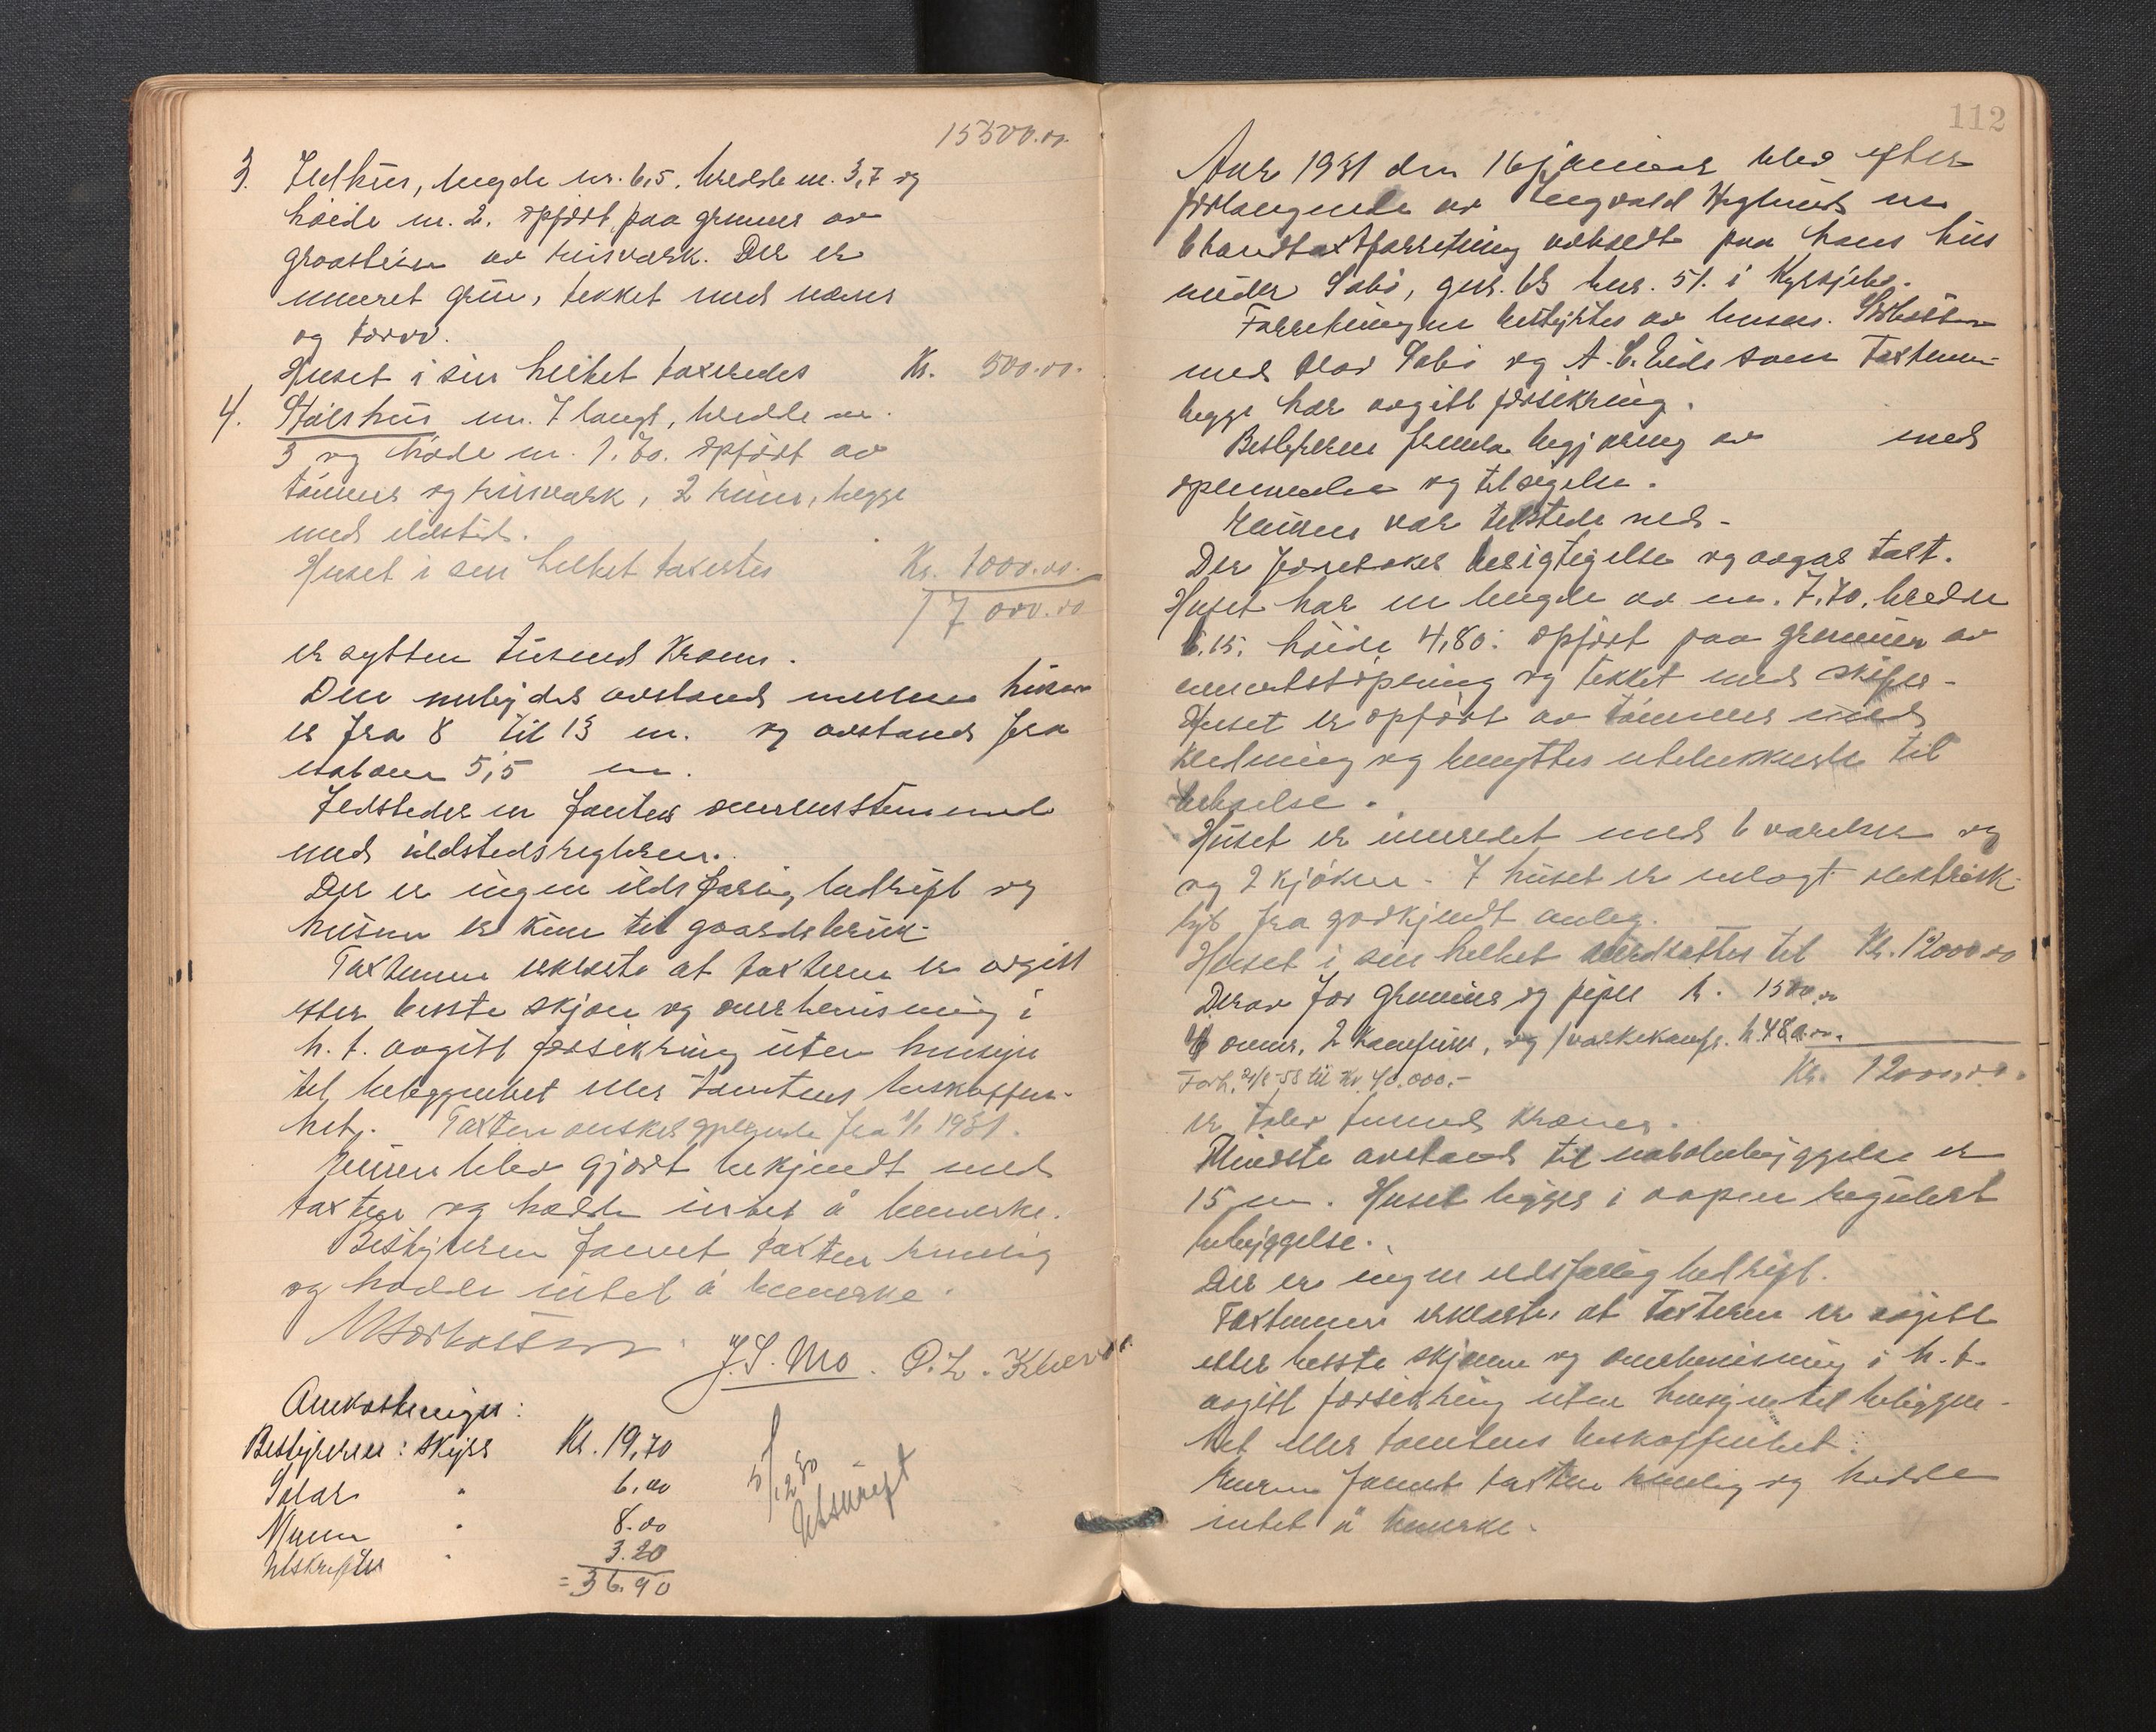 15500.00.
3. Ildhus, lengde m. 6,5, bredde m. 3,7 og
høide m. 2. opført paa grunnn av
graastein av bisværk. Der er
muret grue, tekket med næver
og torv.
Huset i sin helhet taxeredes Kr. 500.00.
4. Støls hus m. 7 langt, bredde m.
3 og høide m. 1.70. opført av
tømmer og bisværk, 2 rum, begge
med ildsted.
Huset i sin helhet taxertes Kr. 1000.00.
17000.00
er sytten tusend Kroner.
Den innbyrdes avstand mellem husene
er fra 8 til 13 m. og avstand fra
naboen 5,5 m.
Ildstederne fantes overensstemmende
med ildstedsreglerne.
Der er ingen ildsfarlig bedrift og
husene er kun til gaardsbruk.
Taxtmenn erklærte at taxterne er avgitt
efter beste skjøn og overbevisning i
h. t. avgitt forsikring uten hensyn
til beliggenhet eller tomtens beskaffen-
het. Taxten ønskes gjeldende fra 1/1 1931.
Eieren blev gjort bekjendt med
taxten og hadde intet å bemerke.
Bestyreren fannet taxten rimelig
og hadde intet å bemerke.
J. S. Mo. P. L.
Omkostninger:
Bestyreren: Skyss Kr. 19,70
Salær " 6,00
Menn " 8.00
Utskrifter " 3.20
= 36.90
5/12 30
Utskrift
112
Aar 1931 den 16 januar blev efter
forlangende av Ingvald Høglund en
branntaxtforretning avholdt paa hans hus
under Sæbø, gnr. 63 bnr. 51. i Kyrkjebø.
Forretningen bestyrtes av lensm.
med Olav Sæbø og A. C. Eide som Taxtmenn
begge har avgitt forsikring.
Bestyreren fremla begjæring av med
opnemnelse og tilsigelse.
Eieren var tilstede ved.
Der foretokes besigtigelse og avgav taxt.
Huset har en lengde av m. 7.70, bredde
6.15, høide 4,80: opført paa grunnmur av
cementstøpning og tekket med skifer.
Huset er opført av tømmer med
kledning og benyttes utelukkende til
beboelse.
Huset er innredet med 6 værelser og
og 2 kjøkken. I huset er innlagt elektrisk
lys fra godkjendt anleg.
Huset i sin helhet verdsettes til Kr. 12000.00
Derav for grunnmur og piper kr. 1500.00
ovner, 2 komfurer, og 1 vaskekomf. kr. 480.00.
Forh. 2/8-58 til kr. 40.000.- Kr. 12000,00.
er tolv tusend kroner.
Minste avstand til nabobebyggelse er
15 m. Huset ligger i aapen reguleret
bebyggelse.
Der er ingen ildsfarlig bedrift.
Taxtmenn erklærte at taxteren er avgitt
efter beste skjønn og overbevisning i h. t.
avgitt forsikring uten hensyn til beliggen-
het eller tomtens beskaffenhet.
Eieren fannt taxten rimelig og hadde
intet å bemerke.